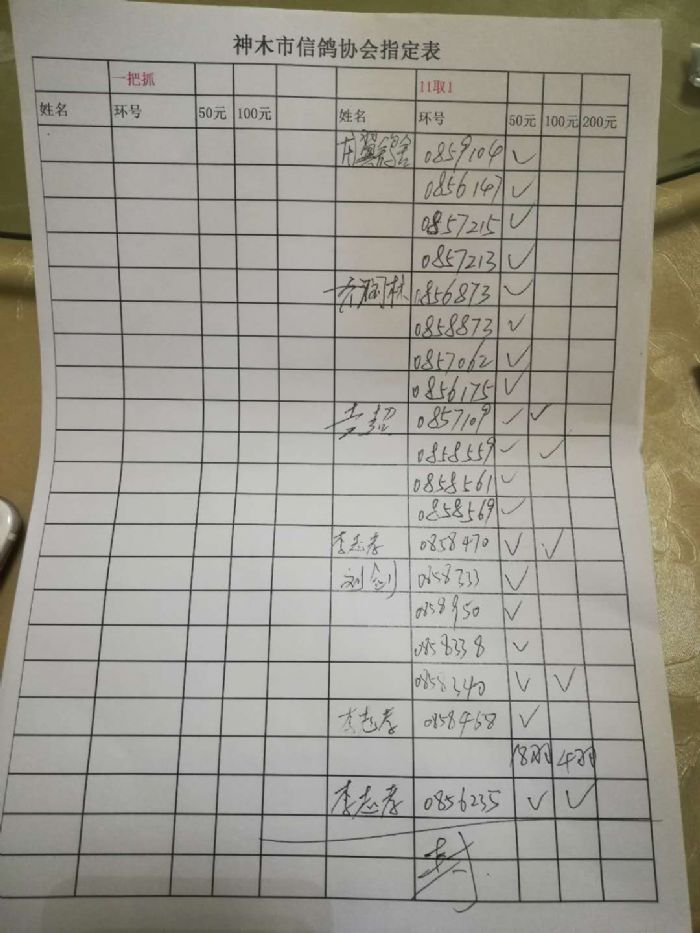 神木市信鸽协会指定表
一把抓 11取1
姓名 环号 50元 100元 姓名 环号 50元 100元 200元
翼鸽舍 0859104 ✓
0856147 ✓
0857215 ✓
0857213 ✓
0856873 ✓
0858873 ✓
0857062 ✓
0856175 ✓
0857109 ✓ ✓
0858559 ✓ ✓
0858561 ✓
0858569 ✓
李志孝 0858470 ✓ ✓
刘剑 0858233 ✓
0858950 ✓
0858338 ✓
0858340 ✓ ✓
李志孝 0858468 ✓
18羽 4羽
李志孝 0856235 ✓ ✓